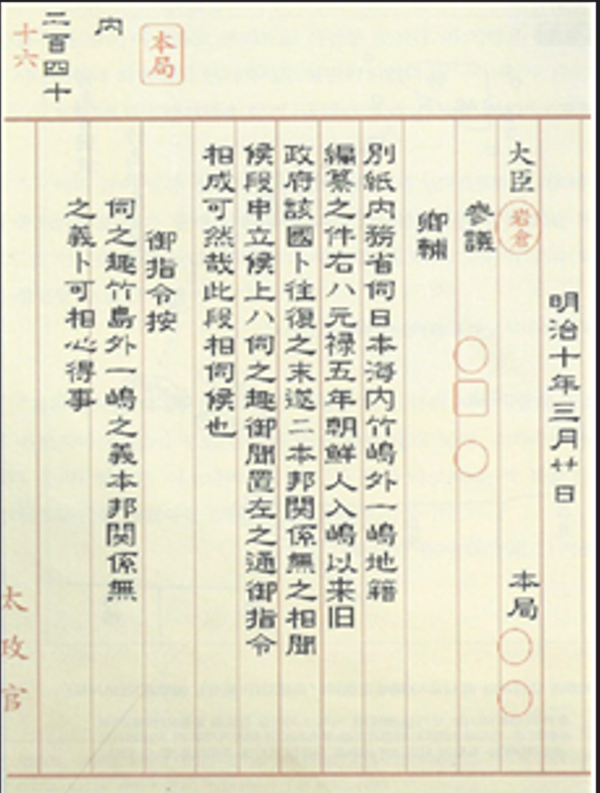 明治十年三月廿日
大臣 岩倉 本局
參議
卿輔
別紙内務省伺日本海内竹嶋外一嶋地籍
編纂之件右ハ元禄五年朝鮮人入嶋以来旧
政府該國ト往復之末遂ニ本邦関係無之相聞
候段申立候上ハ伺之趣御聞置左之通御指令
相成可然哉此段相伺候也
御指令按
伺之趣竹島外一嶋之義本邦関係無
之義ト可相心得事
本局
内
二百四十
十六
太政官